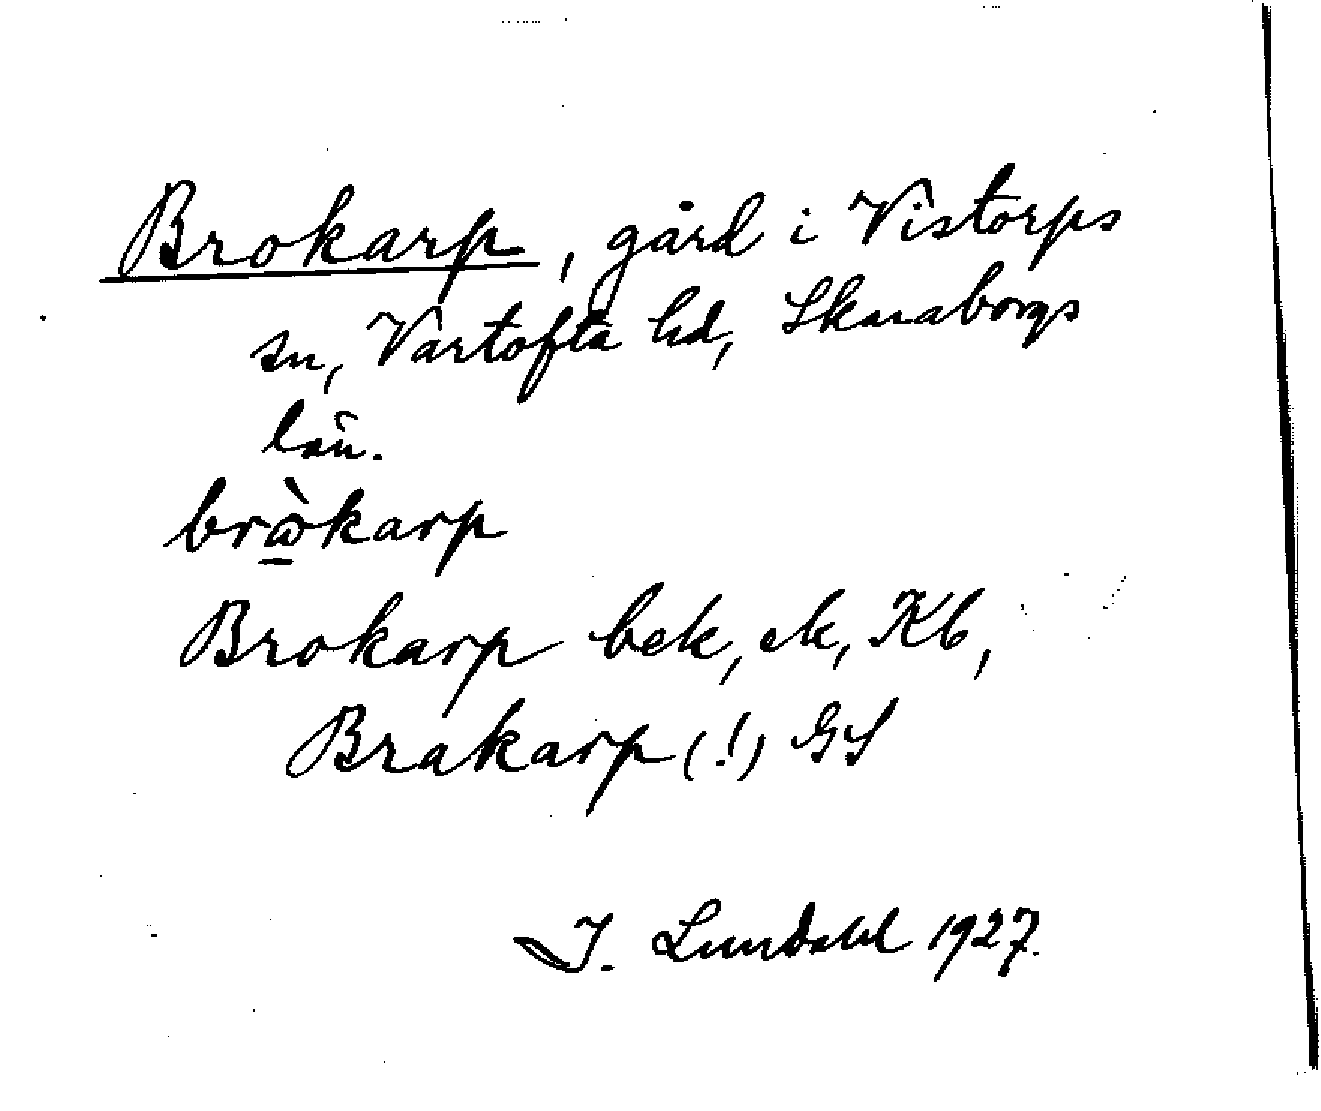 Brokarp, gård i Vistorps
sn, Vartofta hd, Skaraborgs
län.
brὼ̱karp
Brokarp bek, ek, Kb,
Brakarp (!) GS
I. Lundahl 1927.